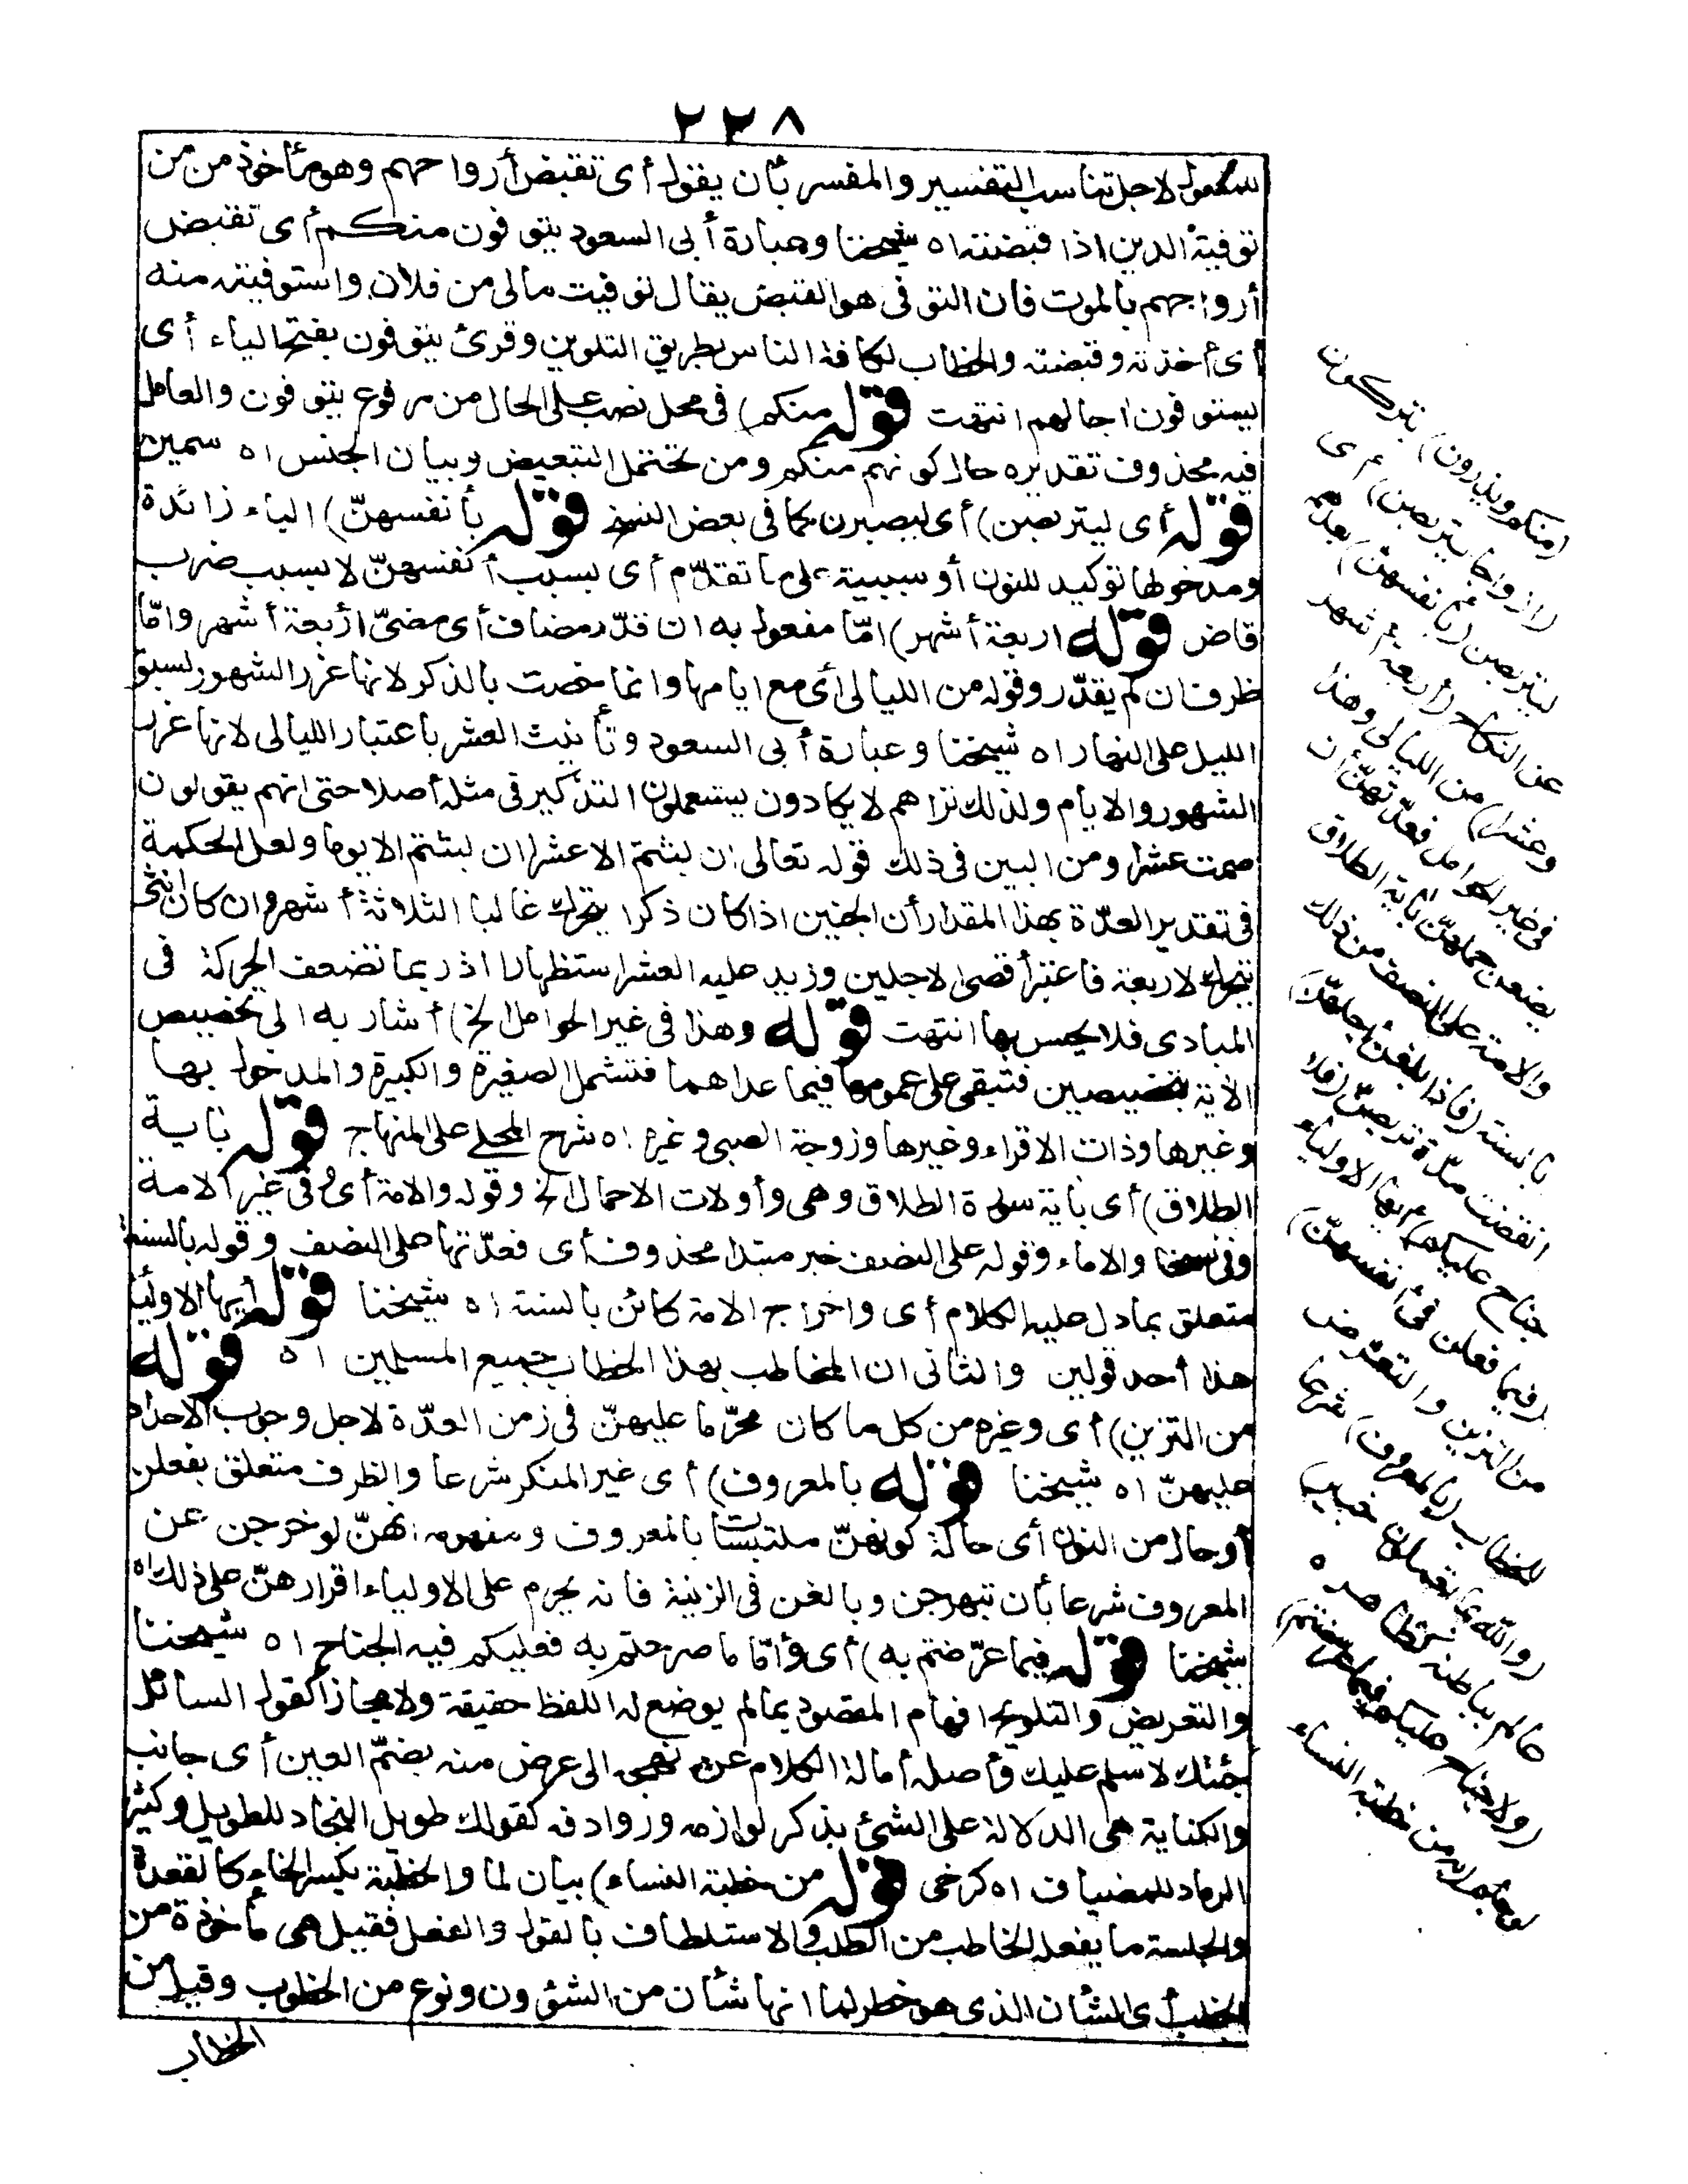 ٢٢٨
للمفعول لاجل تناسب التفسير والمفسر بأن يقول أى تقبض أرواحهم وهو مأخوذ من من
توفية الدين اذا قبضته اه شيخنا وعبارة أبى السعود يتوفون منكم أى تقبض
أرواحهم بالموت فان التوفى هو القبض يقال توفيت مالى من فلان واستوفيته منه
أى أخذته وقبضته والخطاب لكافة الناس بطريق التلوين وقرئ يتوفون بفتح الياء أى
يستوفون اجالهم انتهت قوله منكم) فى محل نصب على الحال من مرفوع يتوفون والعامل
فيه محذوف تقديره حال كونهم منكم ومن تحتمل التبعيض وبيان الجنس اه سمين
قوله أى ليتربصن) أى ليصبرن كما فى بعض النسخ قوله بأنفسهنّ) الباء زائدة
ومدخولها توكيد للنون أو سببية على ما تقدّم أى بسبب أنفسهنّ لا بسبب ضرب
قاض قوله اربعة أشهر) امّا مفعول به ان قدّر مضاف أى مضىّ أربعة أشهر وامّا
ظرف ان لم يقدّر وقوله من الليالى أى مع ايامها وانما خصت بالذكر لانها غرر الشهور لسبق
الليل على النهار اه شيخنا وعبارة أبى السعود وتأنيث العشر باعتبار الليالى لانها غرر
الشهور والايام ولذلك تراهم لا يكادون يستعملون التذكير فى مثله أصلا حتى انهم يقولون
صمت عشرا ومن البين فى ذلك قوله تعالى ان لبثتم الا عشرا ان لبثتم الا يوما ولعل الحكمة
فى تقدير العدّة بهذا المقدار أن الجنين اذا كان ذكرا يتحرك غالبا الثلاثة أشهر وان كان انثى
يتحرك لاربعة فاعتبر أقصى الاجلين وزيد عليه العشر استظهارا اذ ربما تضعف الحركة فى
المبادى فلا يحس بها انتهت قوله وهذا فى غير الحوامل الخ) أشار به الى تخصيص
الآية بتخصيصين فتبقى على عمومها فيما عداهما فتشمل الصغيرة والكبيرة والمدخول بها
وغيرها وذات الاقراء وغيرها وزوجة الصبى وغيره اه شرح المحلى على المنهاج قوله بآية
الطلاق) أى بآية سورة الطلاق وهى وأولات الاحمال الخ وقوله والامة أى وفى غير الامة
وفى نسخة والاماء وقوله على النصف خبر مبتدا محذوف أى فعدّتها على النصف وقوله بالسنة
متعلق بما دل عليه الكلام أى واخراج الامة كائن بالسنة اه شيخنا قوله أيها الاولياء
هذا أحد قولين والثانى ان المخاطب بهذا الخطاب جميع المسلمين اه قوله
من التزين) أى وغيره من كل ما كان محرّما عليهنّ فى زمن العدّة لاجل وجوب الاحداد
عليهنّ اه شيخنا قوله بالمعروف) أى غير المنكر شرعا والظرف متعلق بفعلن
أو حال من النون أى حالة كونهنّ ملتبسات بالمعروف ومفهومه انهنّ لو خرجن عن
المعروف شرعا بأن تبهرجن وبالغن فى الزينة فانه يحرم على الاولياء اقرارهنّ على ذلك اه
شيخنا قوله فيما عرّضتم به) أى وأمّا ما صرحتم به فعليكم فيه الجناح اه شيخنا
والتعريض والتلويح افهام المقصود بما لم يوضع له اللفظ حقيقة ولا مجازا كقول السائل
جئتك لاسلم عليك وأصله أمالة الكلام عن نهجه الى عرض منه بضمّ العين أى جانب
والكناية هى الدلالة على الشئ بذكر لوازمه وروادفه كقولك طويل النجاد للطويل وكثير
الرماد للمضياف اه كرخى قوله من خطبة النساء) بيان لما والخطبة بكسر الخاء كالقعدة
والجلسة ما يفعله الخاطب من الطلب والاستلطاف بالقول والفعل فقيل هى مأخوذة من
الخطب أى الشأن الذى هو خطر لما انها شأن من الشؤون ونوع من الخطوب وقيل من
الخطاب
(منكم ويذرون) يتركون
(ازواجا يتربصن) أى
ليتربصن (بأنفسهنّ) بعدهم
عن النكاح (أربعة أشهر
وعشرا) من الليالى وهذا
فى غير الحوامل فعدّتهنّ أن
يضعن حملهنّ بآية الطلاق
والامة على النصف من ذلك
بالسنة (فاذا بلغن أجلهنّ)
انقضت مدّة تربصهنّ (فلا
جناح عليكم) أيها الاولياء
(فيما فعلن فى أنفسهنّ)
من التزين والتعرّض
للخطاب (بالمعروف) شرعا
(والله بما تعملون خبير)
عالم بباطنه كظاهره
(ولا جناح عليكم فيما عرضتم)
لوحتم (به من خطبة النساء)